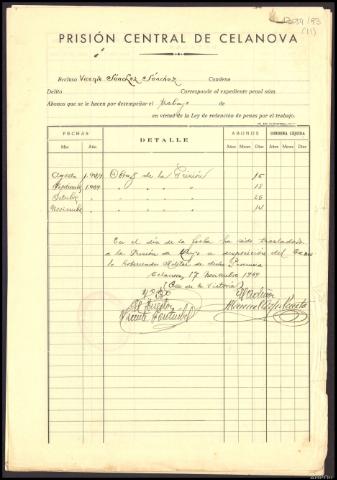 PRISIÓN CENTRAL DE CELANOVA
Recluso Vicente Sánchez Sánchez Condena
Delito Corresponde al expediente penal núm.
Abonos que se le hacen por desempeñar el trabajo de
en virtud de la Ley de redención de penas por el trabajo.
FECHAS DETALLE ABONOS CONDENA LÍQUIDA
Mes Año Años Meses Días Años Meses Días
Agosto Obras de la Prisión 15
" " " 15
Octubre " " "
Noviembre " " " 14
En el día de la fecha ha sido trasladado
a la Prisión de a disposición del
Gobernador Militar de dicha Provincia
Celanova, 17 Noviembre
de la Victoria
El Director
Vicente